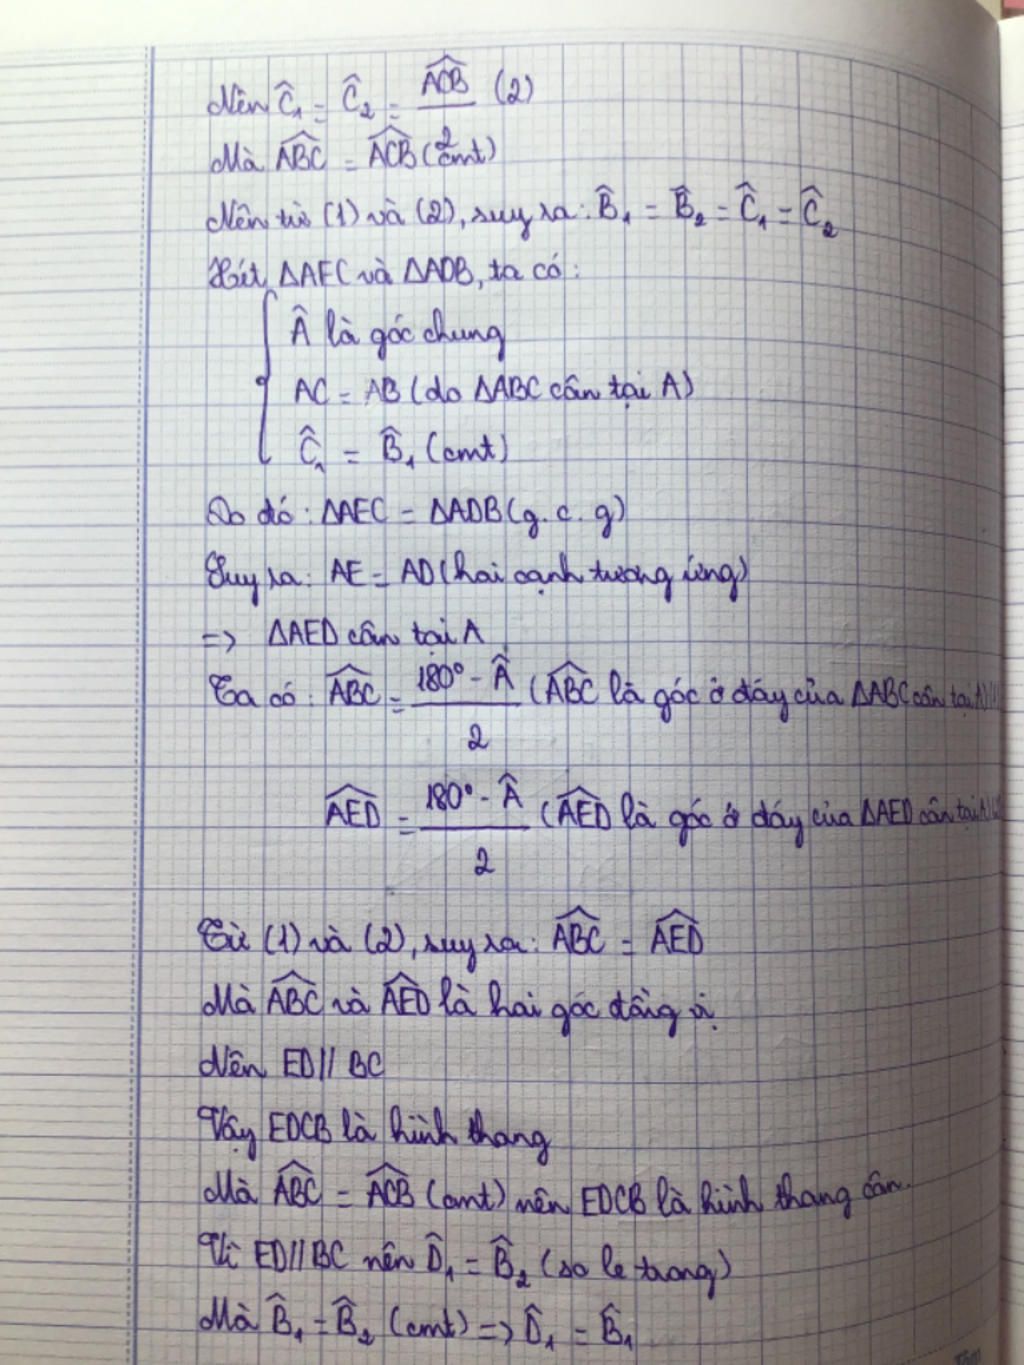 Nên Ĉ₁ = Ĉ₂ = \frac{\widehat{ACB}}{2} (2)
Mà \widehat{ABC} = \widehat{ACB} (cmt)
Nên từ (1) và (2), suy ra: B̂₁ = B̂₂ = Ĉ₁ = Ĉ₂
Xét ΔAEC và ΔADB, ta có:
Â là góc chung
AC = AB (do ΔABC cân tại A)
Ĉ₁ = B̂₁ (cmt)
Do đó: ΔAEC = ΔADB (g.c.g)
Suy ra: AE = AD (hai cạnh tương ứng)
=> ΔAED cân tại A
Ta có: \widehat{ABC} = \frac{180° - Â}{2} (\widehat{ABC} là góc ở đáy của ΔABC cân tại A)
\widehat{AED} = \frac{180° - Â}{2} (\widehat{AED} là góc ở đáy của ΔAED cân tại A)
Từ (1) và (2), suy ra: \widehat{ABC} = \widehat{AED}
Mà \widehat{ABC} và \widehat{AED} là hai góc đồng vị
Nên ED // BC
Vậy EDCB là hình thang
Mà \widehat{ABC} = \widehat{ACB} (cmt) nên EDCB là hình thang cân.
Vì ED // BC nên D̂₁ = B̂₂ (so le trong)
Mà B̂₁ = B̂₂ (cmt) => D̂₁ = B̂₁